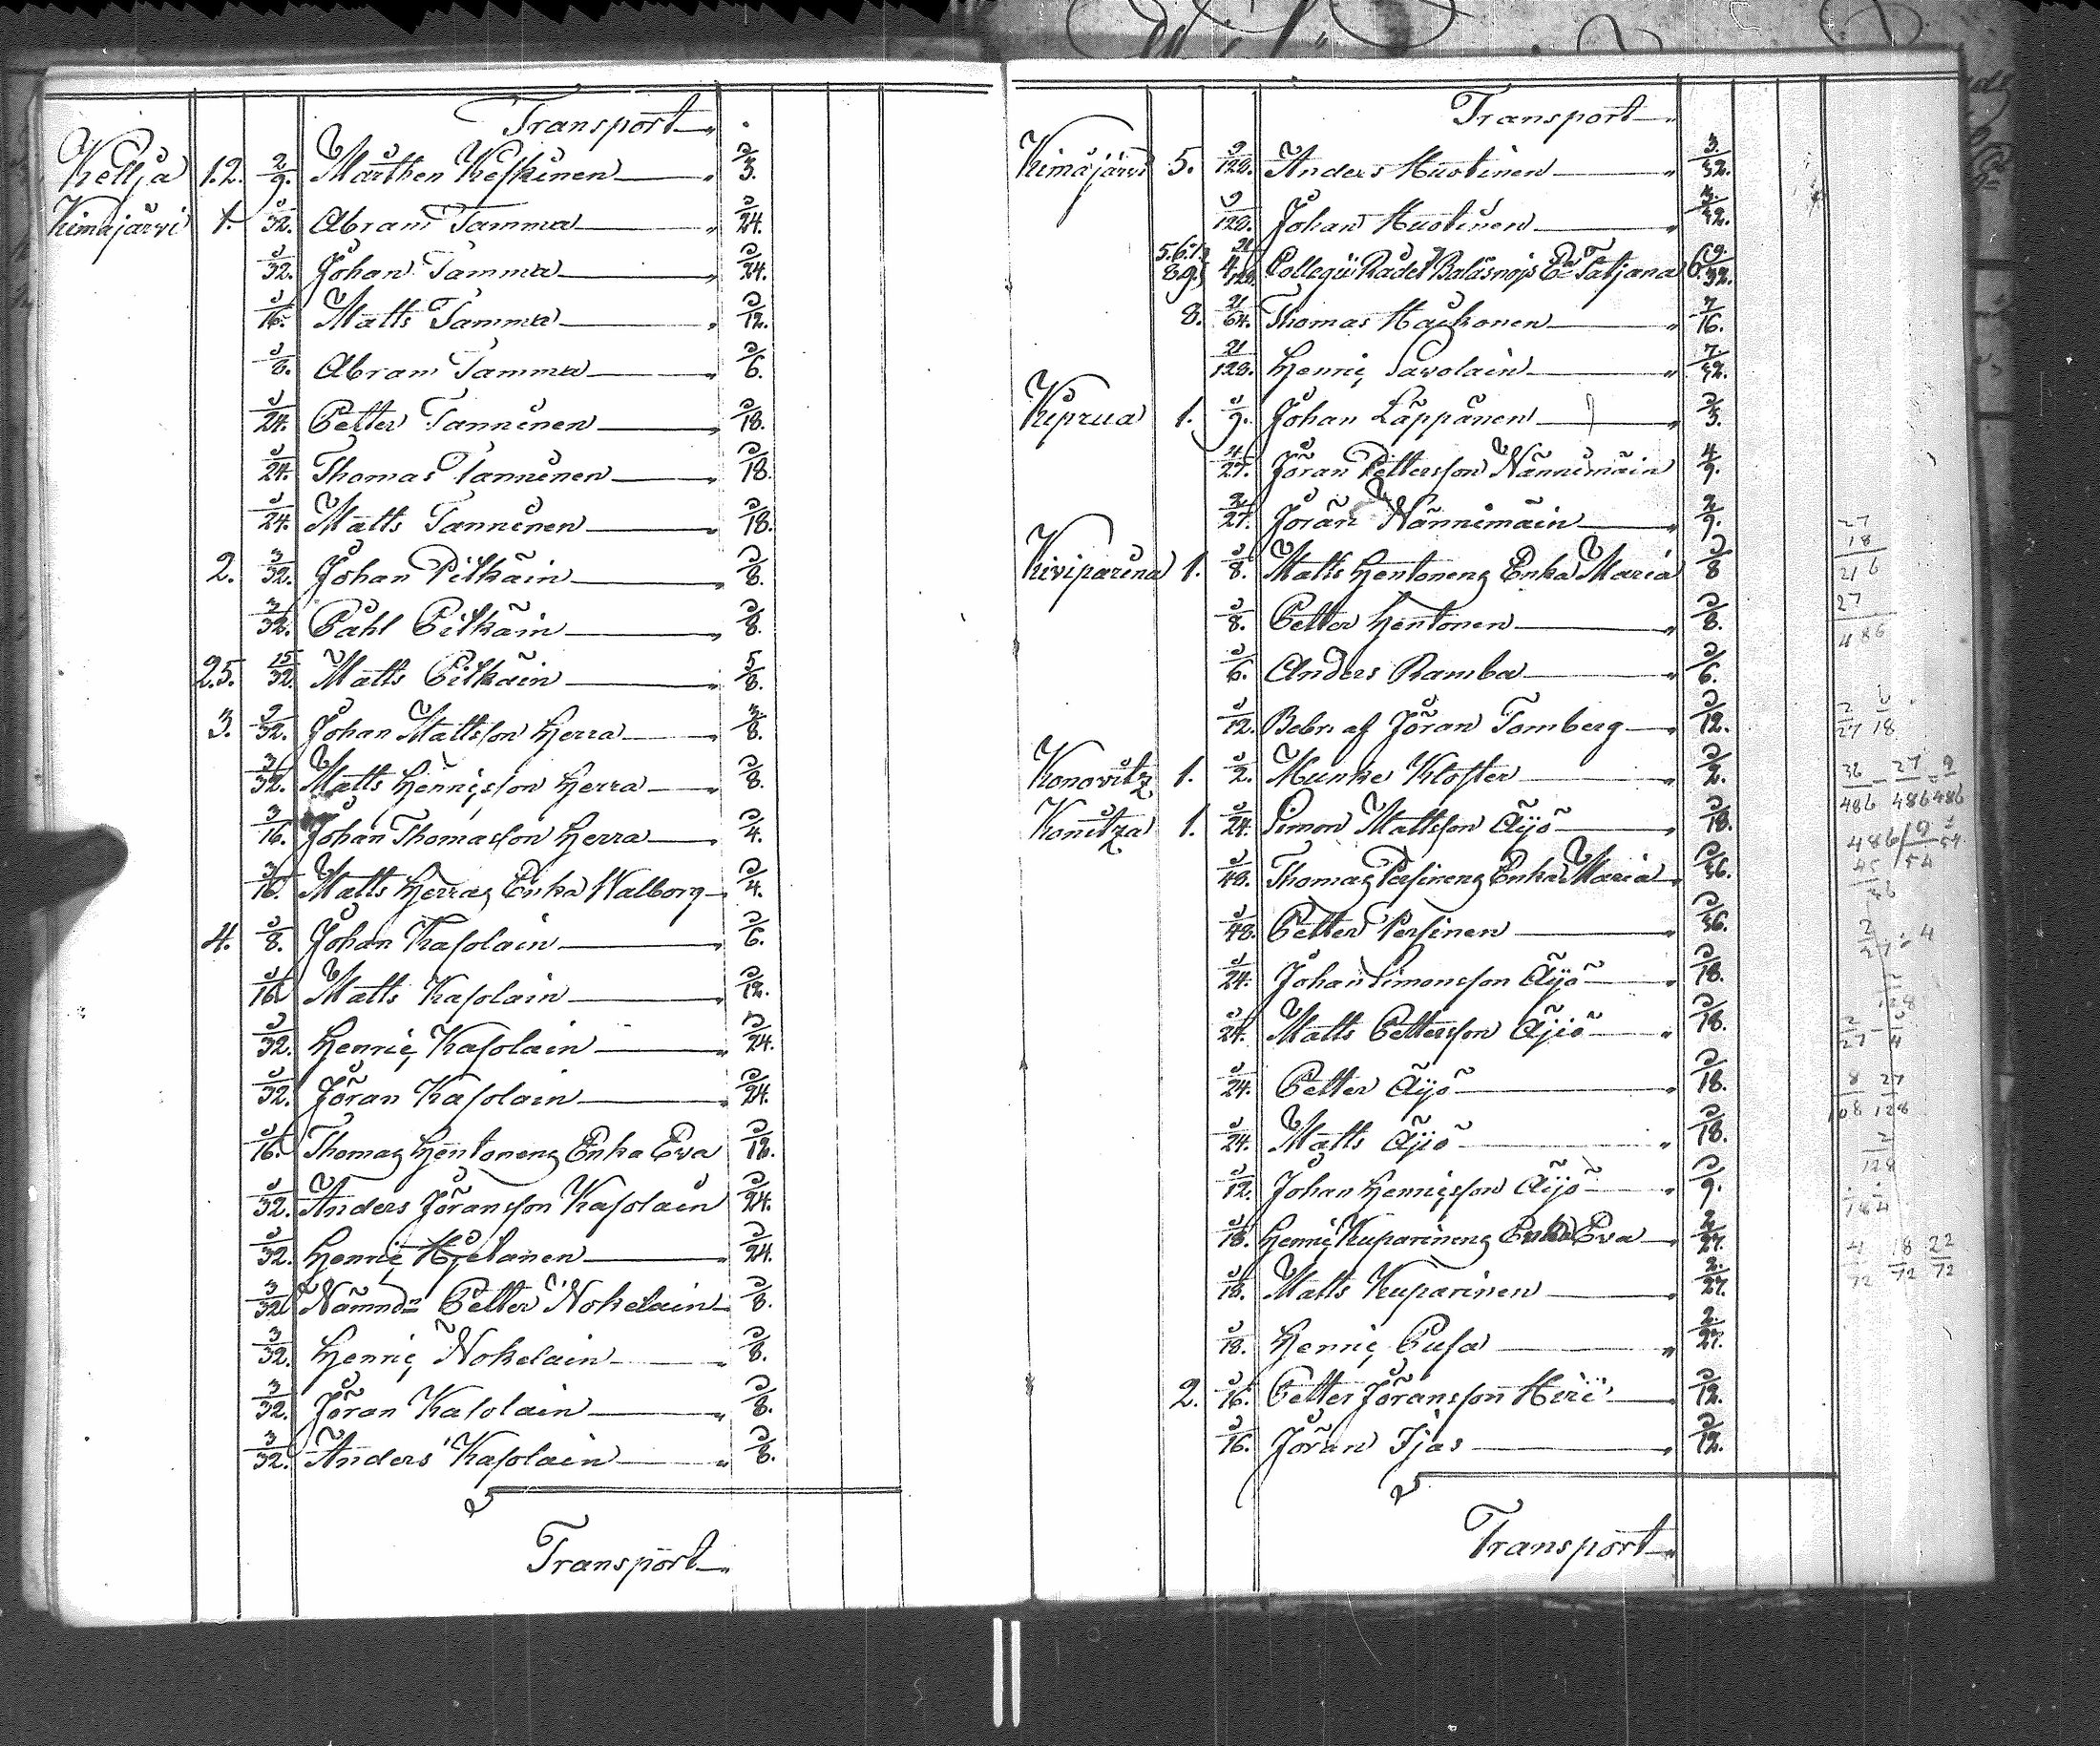 Transport
Kellja 1.2. 2/9. Mårthen Keskinen 2/3.
Kimajärvi 1. 1/32. Abram Tamma 1/24.
1/32. Johan Tamma 1/24.
1/16. Matts Tamma 1/12.
1/8. Abram Tamma 1/6.
1/24. Petter Tanninen 1/18.
1/24. Thomas Tanninen 1/18.
1/24. Matts Tanninen 1/18.
2. 3/32. Johan Pitkäin 1/8.
3/32. Påhl Pitkäin 1/8.
2.5. 15/32. Matts Pitkäin 5/8.
3. 9/32. Johan Mattsson Herra 3/8.
3/32. Matts Henricsson Herra 1/8.
3/16. Johan Thomasson Herra 1/4.
3/16. Matts Herras Enka Walborg 1/4.
4. 1/8. Johan Kasolain 1/6.
1/16. Matts Kasolain 1/12.
1/32. Henric Kasolain 1/24.
1/32. Jöran Kasolain 1/24.
1/16. Thomas Hentonens Enka Eva 1/12.
1/32. Anders Jöransson Kasolain 1/24.
1/32. Henric Hietanen 1/24.
3/32. Nämnd: Petter Nokelain 1/8.
3/32. Henric Nokelain 1/8.
3/32. Jöran Kasolain 1/8.
3/32. Anders Kasolain 1/8.
Transport
Transport
Kimajärvi 5. 9/128. Anders Mustinen 3/32.
9/128. Johan Mustinen 3/32.
5.6.7. 8.9. Collegii Rådet Tatjana 6 9/32.
8. 21/64. Thomas Haikonen 7/16.
21/128. Henric Savolain 7/32.
Kiprua 1. 1/9. Johan Läppänen 1/3.
4/27. Jöran Pettersson Nännimäin 4/9.
2/27. Jöran Nännimäin 2/9.
Kiviparina 1. 1/8. Matts Hentonens Enka Maria 1/8
1/8. Petter Hentonen 1/8.
1/6. Anders Ramba 1/6.
1/12. Bebr. af Jöran Tomberg 1/12.
Konovitz 1. 1/2. Munke Kloster 1/2.
Konitza 1. 1/24. Simon Mattsson Äijö 1/18.
1/48. Thomas Persinens Enka Maria 1/36.
1/48. Petter Persinen 1/36.
1/24. Johan Simonsson Äijö 1/18.
1/24. Matts Pettersson Äijö 1/18.
1/24. Petter Äijö 1/18.
1/24. Matts Äijö 1/18.
1/12. Johan Henricsson Äijö 1/9.
1/18. Henric Kuparinens Enka Eva 2/27.
1/18. Matts Kuparinen 2/27.
1/18. Henric Pusa 2/27.
2. 1/16. Petter Jöransson 1/12.
1/16. Jöran Tjas 1/12.
Transport
27
18
216
27
486